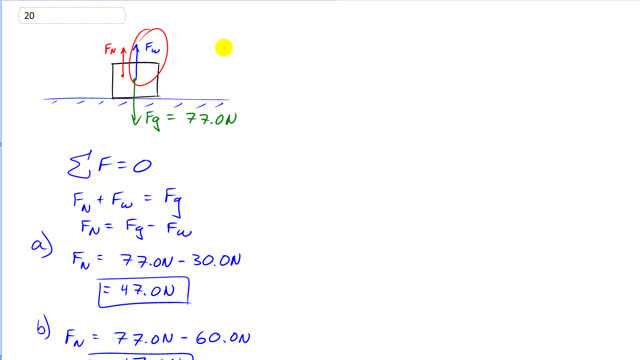 20
F_N F_w
Fg = 77.0N
ΣF = 0
F_N + F_w = Fg
F_N = Fg - F_w
a)
F_N = 77.0N - 30.0N
= 47.0N
b)
F_N = 77.0N - 60.0N